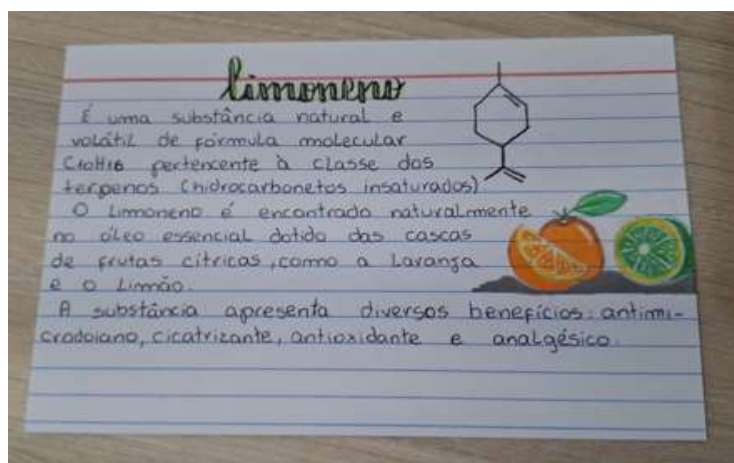 limoneno
É uma substância natural e
volátil de fórmula molecular
C10H16 pertencente à classe dos
terpenos (hidrocarbonetos insaturados)
O Limoneno é encontrado naturalmente
no óleo essencial dotido das cascas
de frutas cítricas, como a Laranja
e o Limão.
A substância apresenta diversos benefícios: antimi-
crodoiano, cicatrizante, antioxidante e analgésico.